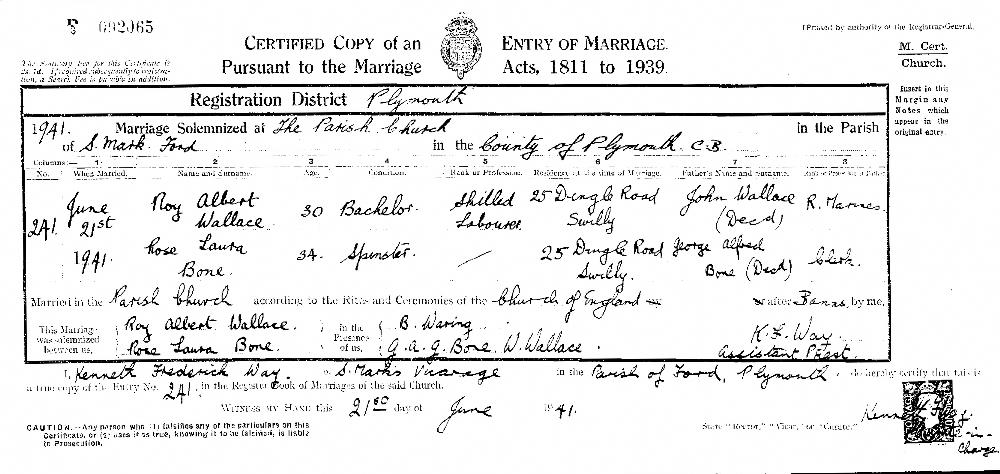 R/8 092065
Printed by authority of the Registrar-General.
CERTIFIED COPY of an ENTRY OF MARRIAGE.
Pursuant to the Marriage Acts, 1811 to 1939.
M. Cert.
Church.
The Statutory Fee for this Certificate is
If required subsequently to registra-
tion, a Search Fee is payable in addition.
Insert in this
Margin any
Notes which
appear in the
original entry.
Registration District Plymouth
1941. Marriage Solemnized at The Parish Church in the Parish
of S. Mark Ford in the County of Plymouth C.B.
Columns:— 1 2 3 4 5 6 7 8
No. When Married. Name and Surname. Age. Condition. Rank or Profession. Residence at the time of Marriage. Father's Name and Surname. Rank or Profession of Father
241. June 21st 1941. Roy Albert Wallace 30 Bachelor. Skilled Labourer 25 Dingle Road Swilly John Wallace (Decd) R. Marines.
Rose Laura Bone. 34. Spinster. — 25 Dingle Road Swilly. George Alfred Bone (Decd) Clerk.
Married in the Parish Church according to the Rites and Ceremonies of the Church of England or after Banns, by me,
This Marriage was solemnized between us, Roy Albert Wallace. Rose Laura Bone. in the Presence of us, B. Waring G.A.G. Bone. W. Wallace.
K.F. Way
Assistant Priest.
I, Kenneth Frederick Way, S. Mark's Vicarage in the Parish of Ford, Plymouth, do hereby certify that this is
a true copy of the Entry No. 241, in the Register Book of Marriages of the said Church.
WITNESS MY HAND this 21st day of June 1941.
CAUTION.—Any person who (1) falsifies any of the particulars on this
Certificate, or (2) uses it as true, knowing it to be falsified, is liable
to Prosecution.
State "Rector," "Vicar," or "Curate."
Kenneth F. Way
-in-
Charge.